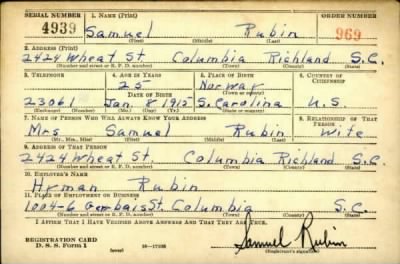 SERIAL NUMBER 1. NAME (Print) ORDER NUMBER
4939 Samuel Rubin 969
(First) (Middle) (Last)
2. ADDRESS (Print)
2424 Wheat St Columbia Richland S.C.
(Number and street or R. F. D. number) (Town) (County) (State)
3. TELEPHONE 4. AGE IN YEARS 5. PLACE OF BIRTH 6. COUNTRY OF CITIZENSHIP
25 Norway
DATE OF BIRTH
23061 Jan. 1915 S. Carolina U.S.
(Exchange) (Number) (Mo.) (Day) (Yr.) (State or country)
7. NAME OF PERSON WHO WILL ALWAYS KNOW YOUR ADDRESS 8. RELATIONSHIP OF THAT PERSON
Mrs Samuel Rubin Wife
(Mr., Mrs., Miss) (First) (Middle) (Last)
9. ADDRESS OF THAT PERSON
2424 Wheat St. Columbia Richland S.C.
(Number and street or R. F. D. number) (Town) (County) (State)
10. EMPLOYER'S NAME
Hyman Rubin
11. PLACE OF EMPLOYMENT OR BUSINESS
1004-6 Gerbais St. Columbia S.C.
(Number and street or R. F. D. number) (Town) (County) (State)
I AFFIRM THAT I HAVE VERIFIED ABOVE ANSWERS AND THAT THEY ARE TRUE.
REGISTRATION CARD
D. S. S. Form 1 (over) 16—17105 Samuel Rubin
(Registrant's signature)